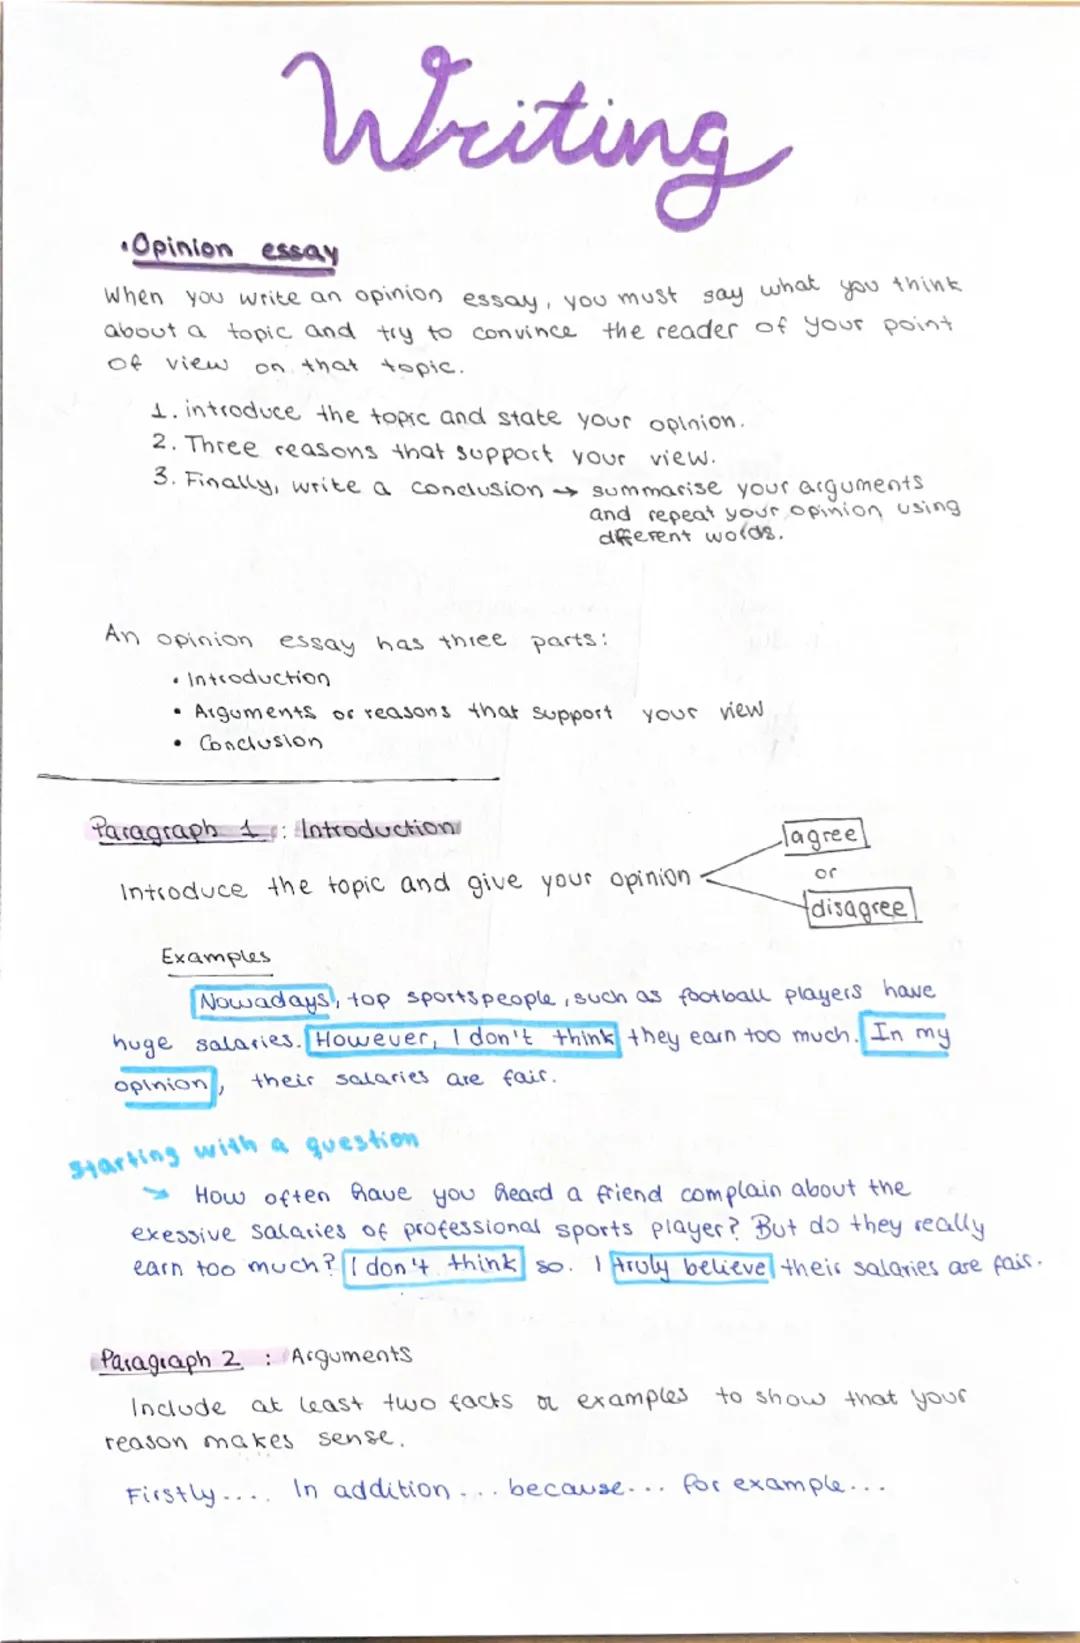 Writing
• Opinion essay
When you write an opinion essay, you must say what you think
about a topic and try to convince the reader of your point
of view on that topic.
1. introduce the topic and state your opinion.
2. Three reasons that support your view.
3. Finally, write a conclusion → summarise your arguments
and repeat your opinion using
dfferent words.
An opinion essay has three parts:
• Introduction
• Arguments or reasons that support your view
• Conclusion
Paragraph 1 : Introduction
Introduce the topic and give your opinion
agree
or
disagree
Examples
Nowadays, top sportspeople, such as football players have
huge salaries. However, I don't think they earn too much. In my
opinion, their salaries are fair.
starting with a question
→ How often have you heard a friend complain about the
exessive salaries of professional sports player? But do they really
earn too much? I don't think so. I truly believe their salaries are fair.
Paragraph 2 : Arguments
Include at least two facts or examples to show that your
reason makes sense.
Firstly.... In addition... because... for example...